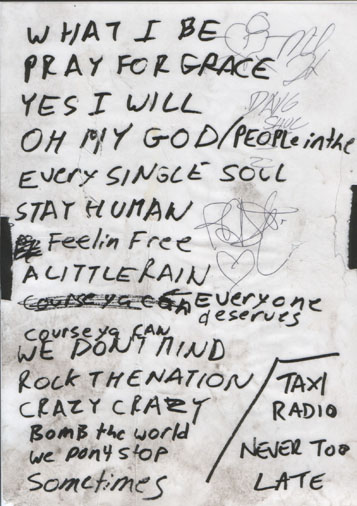 WHAT I BE
PRAY FOR GRACE
YES I WILL
OH MY GOD/PEOPLE in the
EVERY SINGLE SOUL
STAY HUMAN
Feelin Free
A LITTLE RAIN
course ya can Everyone
deserves
course ya CAN
WE DON'T MIND
ROCK THE NATION
CRAZY CRAZY
BomB the world
we Don4 stop
Sometimes
TAXI
RADIO
NEVER Too
LATE